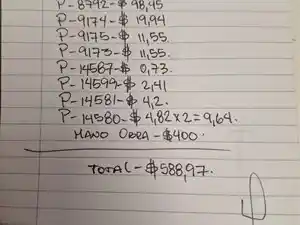 P-8792-$ 98,45
P-9174-$ 19,94
P-9175-$ 11,55.
P-9173-$ 11,55.
P-14587-$ 0,73.
P-14599-$ 2,41
P-14581-$ 4,2.
P-14580-$ 4,82x2=9,64.
MANO OBRA-$400.
TOTAL-$588,97.